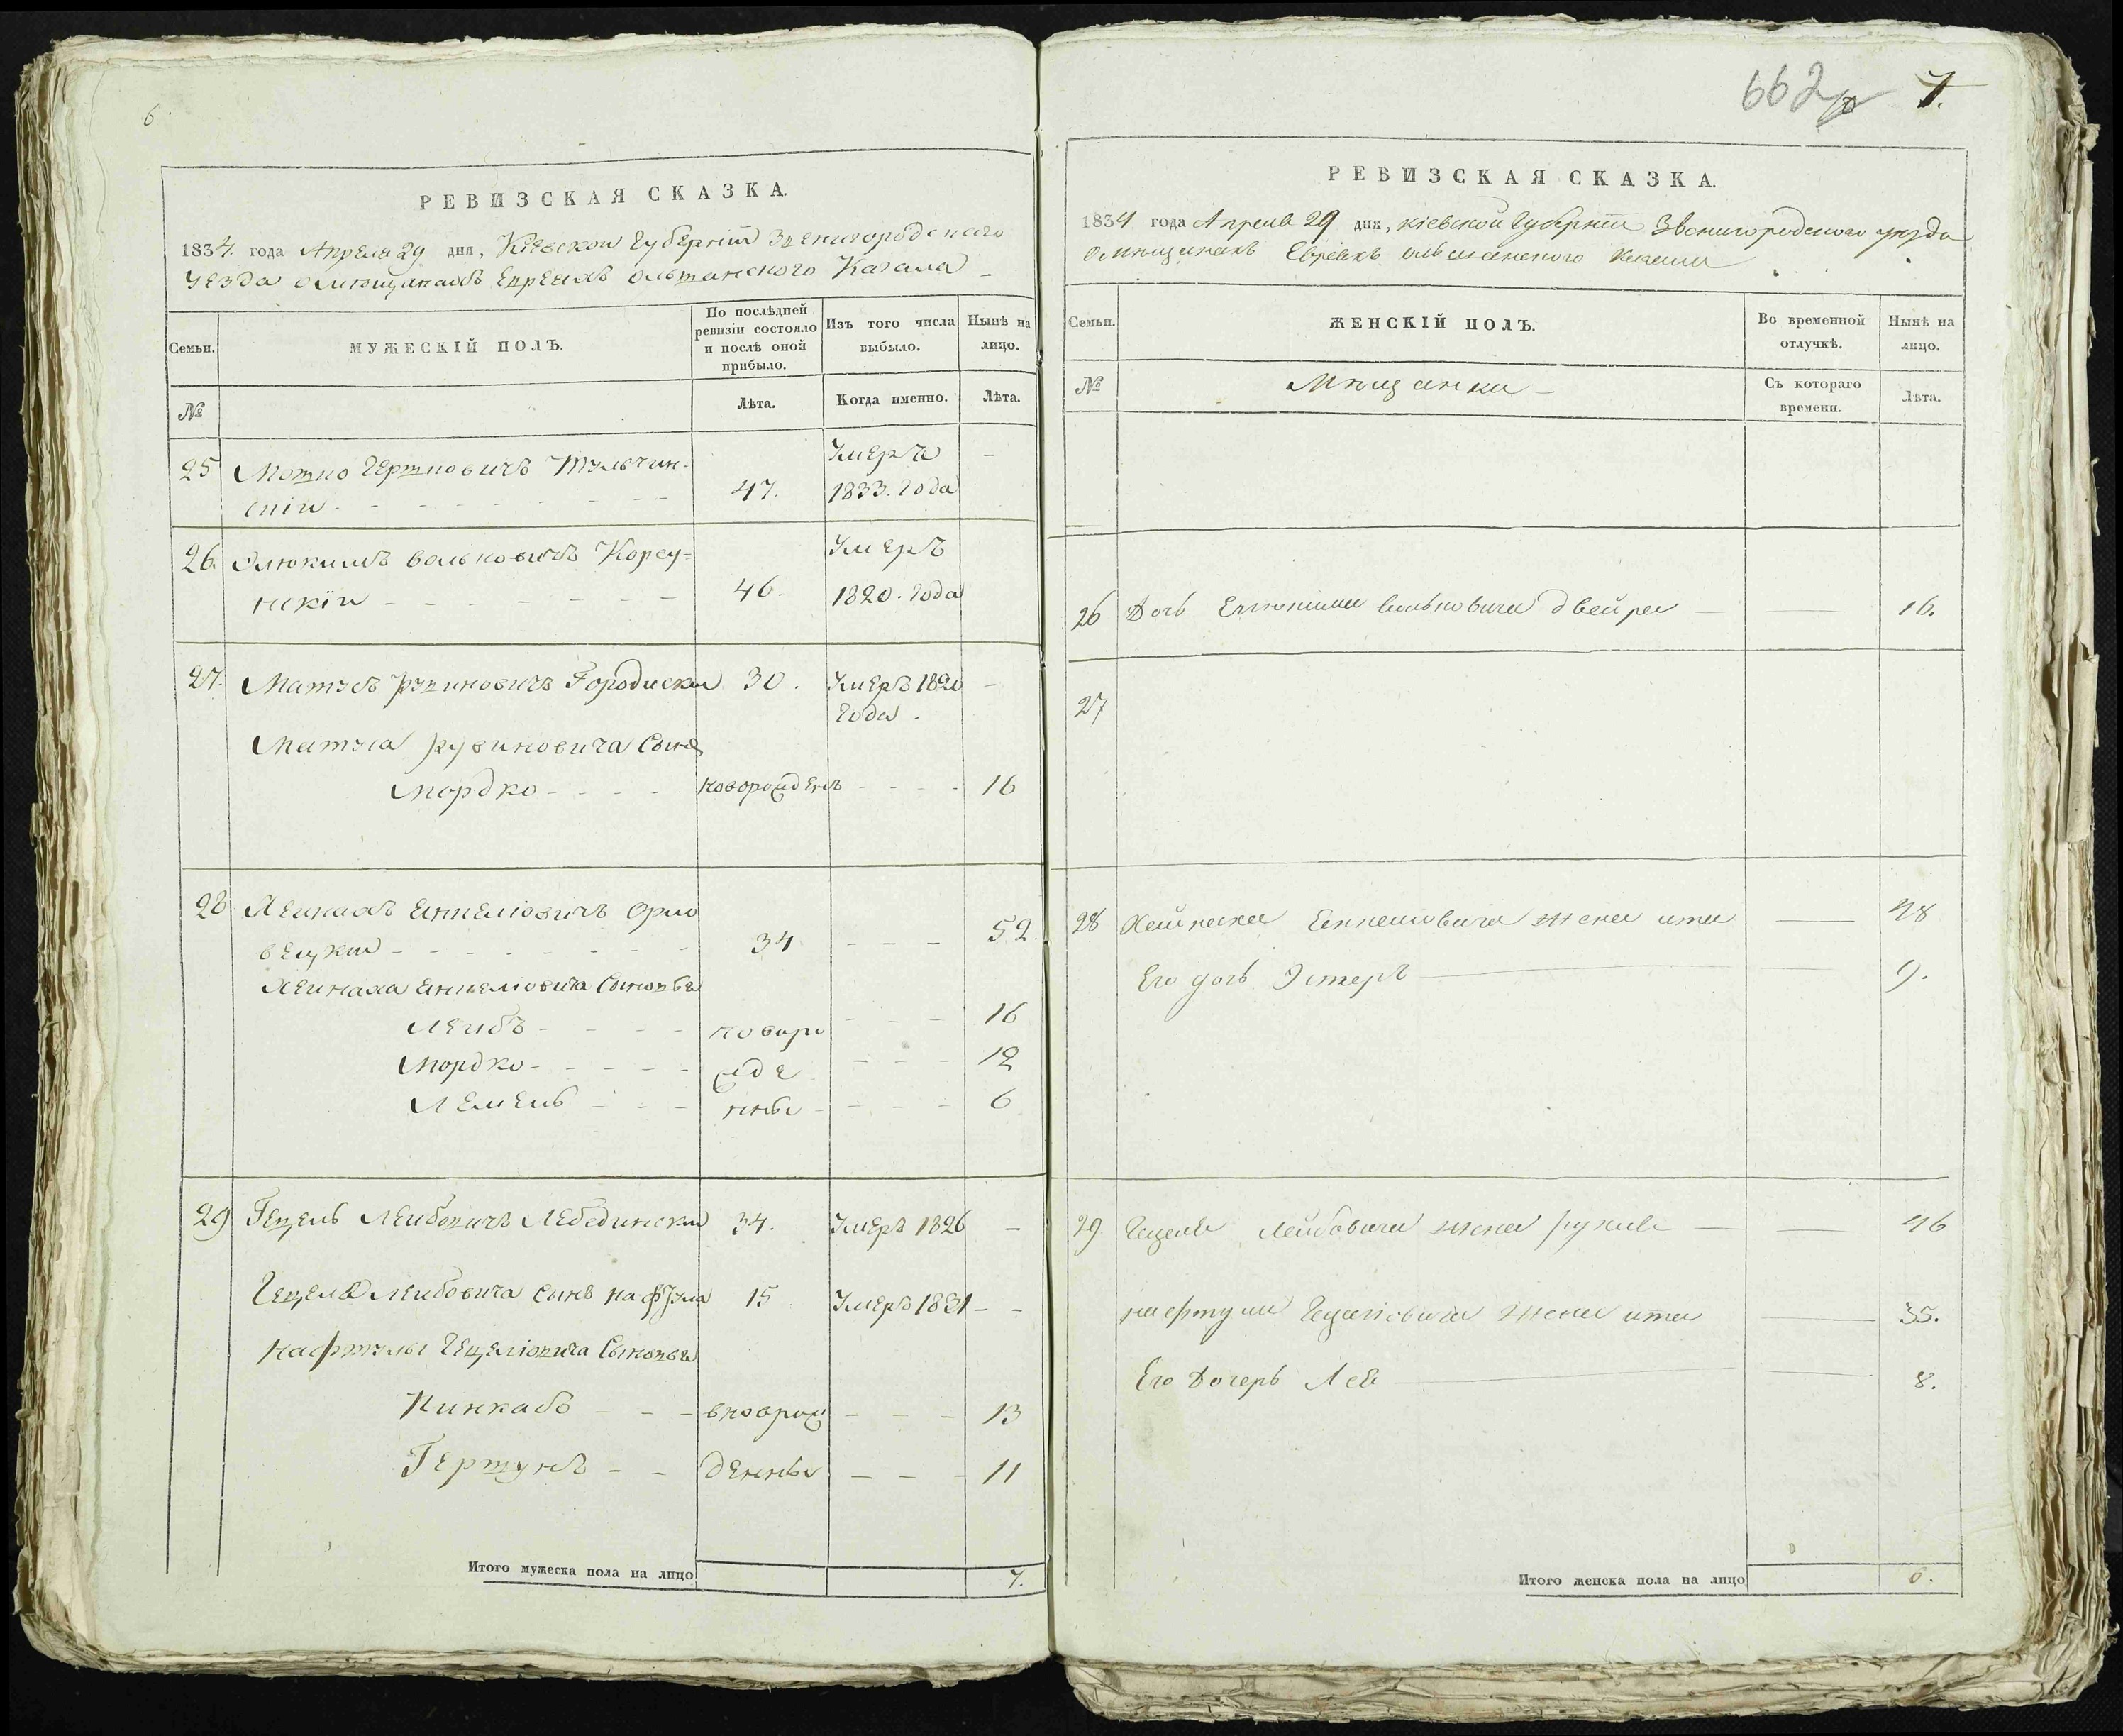 6.
РЕВИЗСКАЯ СКАЗКА.
1834. года Апреля 29 дня, Кіевской губернїи Звенигородскаго
уезда о мѣщанахъ Евреяхъ Ольшанского Кагала
Семьи.
МУЖЕСКІЙ ПОЛЪ.
По послѣдней ревизіи состояло и послѣ оной прибыло.
Изъ того числа выбыло.
Нынѣ на лицо.
№
Лѣта.
Когда именно.
Лѣта.
25 Мошко Гершковичъ Тульчин- Умеръ -
скіи 47. 1833. года
26. Элюкимъ Вольковичъ Корсу= Умеръ
нскїи 46. 1820. года
27. Матусъ Рувиновичъ Городиски 30. Умеръ 1820 -
года.
Матуса Рувиновича Сынъ
Мордко новорожденъ 16
28 Хеинахъ Орло
вецки 34 52.
Хеинаха Сыновья
Леибъ новоро 16
Мордко жде 12
Лемель нны 6
29 Гецель Леибовичъ Лебедински 34. Умеръ 1826 -
Гецеля Леибовича сынъ 15 Умеръ 1831 - -
Нафтулы Гецеліовича Сыновья
Пинкасъ вноврож 13
Гершунъ денны 11
Итого мужеска пола на лицо 7.
662 7.
РЕВИЗСКАЯ СКАЗКА.
1834 года Апреля 29 дня, Кіевской Губернїи Звенигородского уезда
о мѣщанахъ Евреяхъ Ольшанского Кагала
Семьи.
ЖЕНСКІЙ ПОЛЪ.
Во временной отлучкѣ.
Нынѣ на лицо.
№
Мѣщанки
Съ котораго времени.
Лѣта.
26 Дочь Вольковича Двейра 16.
27
28 Хейнаха жена ита 48
Его дочь Эстеръ 9.
29 Гецеля Лейбовича жена 46
Нафтулы Гецеліовича жена ита 35.
Его Дочерь Лея 8.
Итого женска пола на лицо 6.